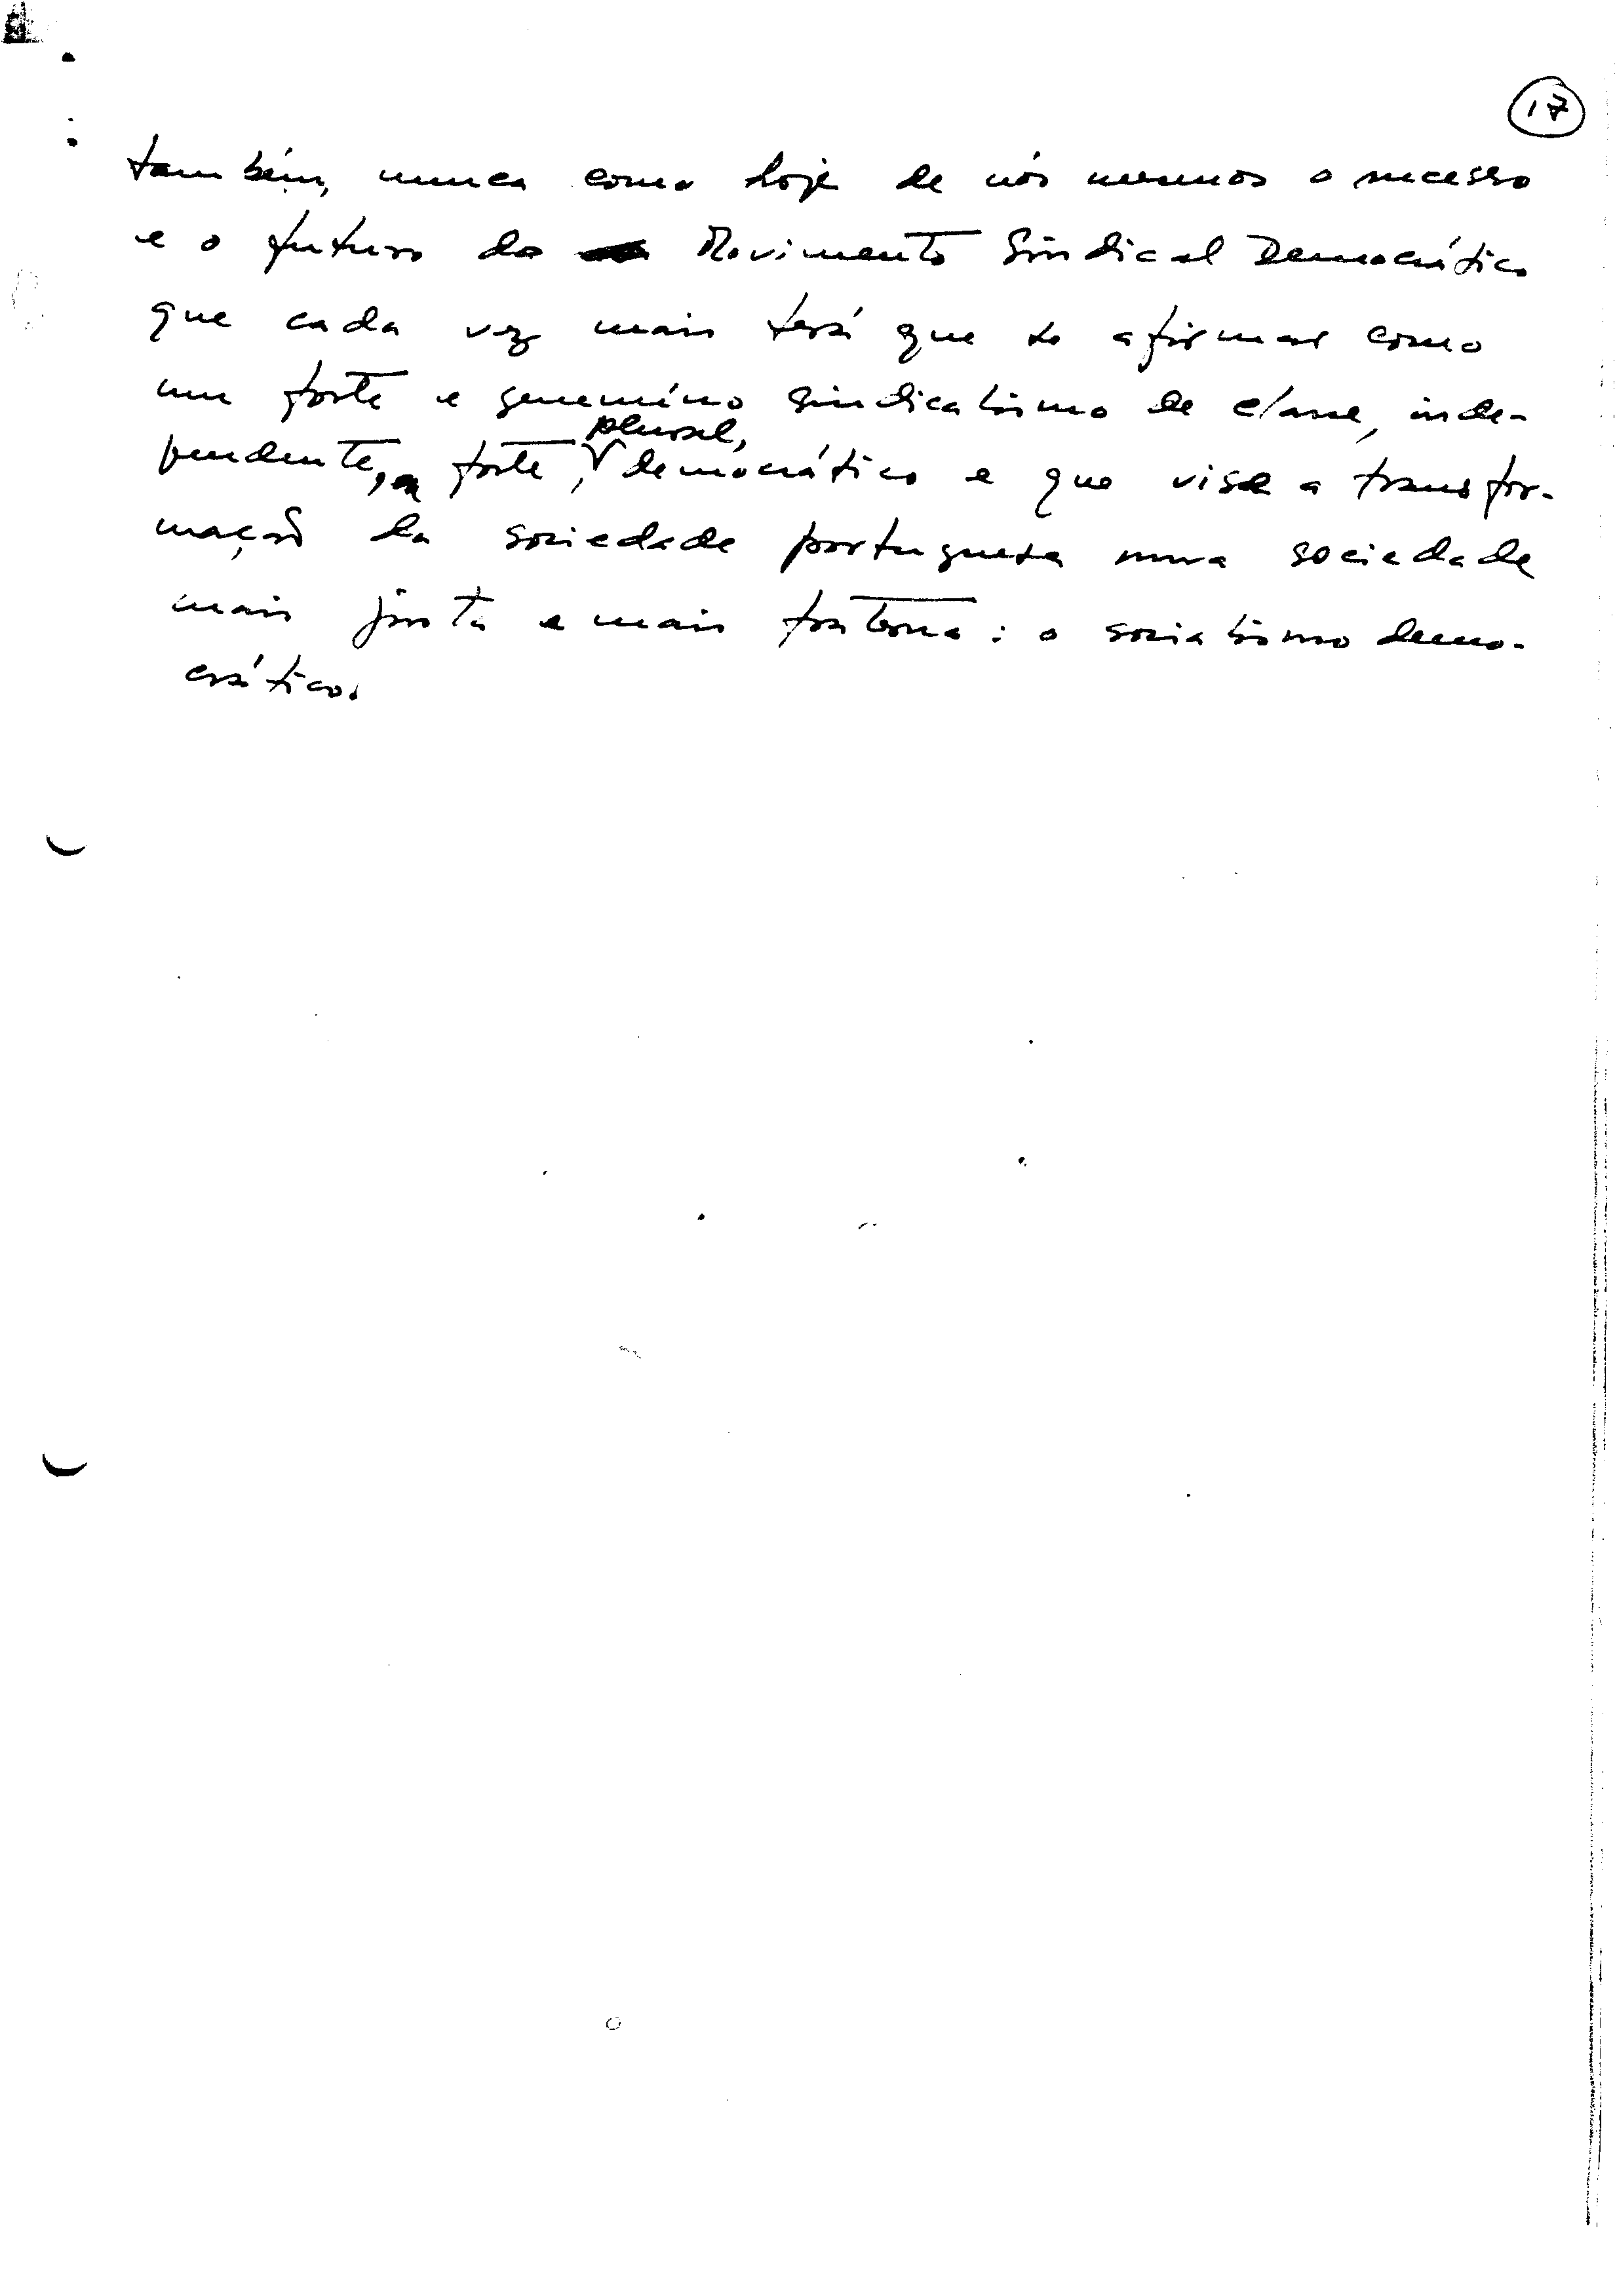 17
também, nunca como hoje de nós mesmos o sucesso
e o futuro do Movimento Sindical Democrático
que cada vez mais terá que se afirmar como
um forte e genuíno sindicalismo de classe, inde-
plural,
pendente, forte, democrático e que vise a transfor-
mação da sociedade portuguesa numa sociedade
mais justa e mais fraterna: o socialismo demo-
crático.